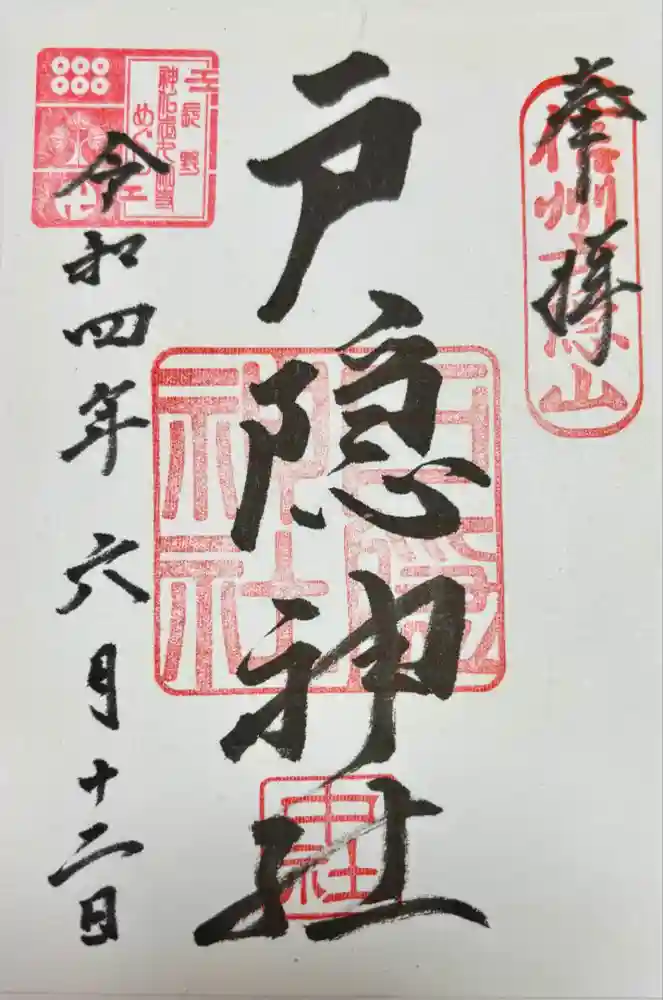 奉拝
信州戸隠山
戸隠神社
戸隠
神社
中社
令和四年六月十二日
長野